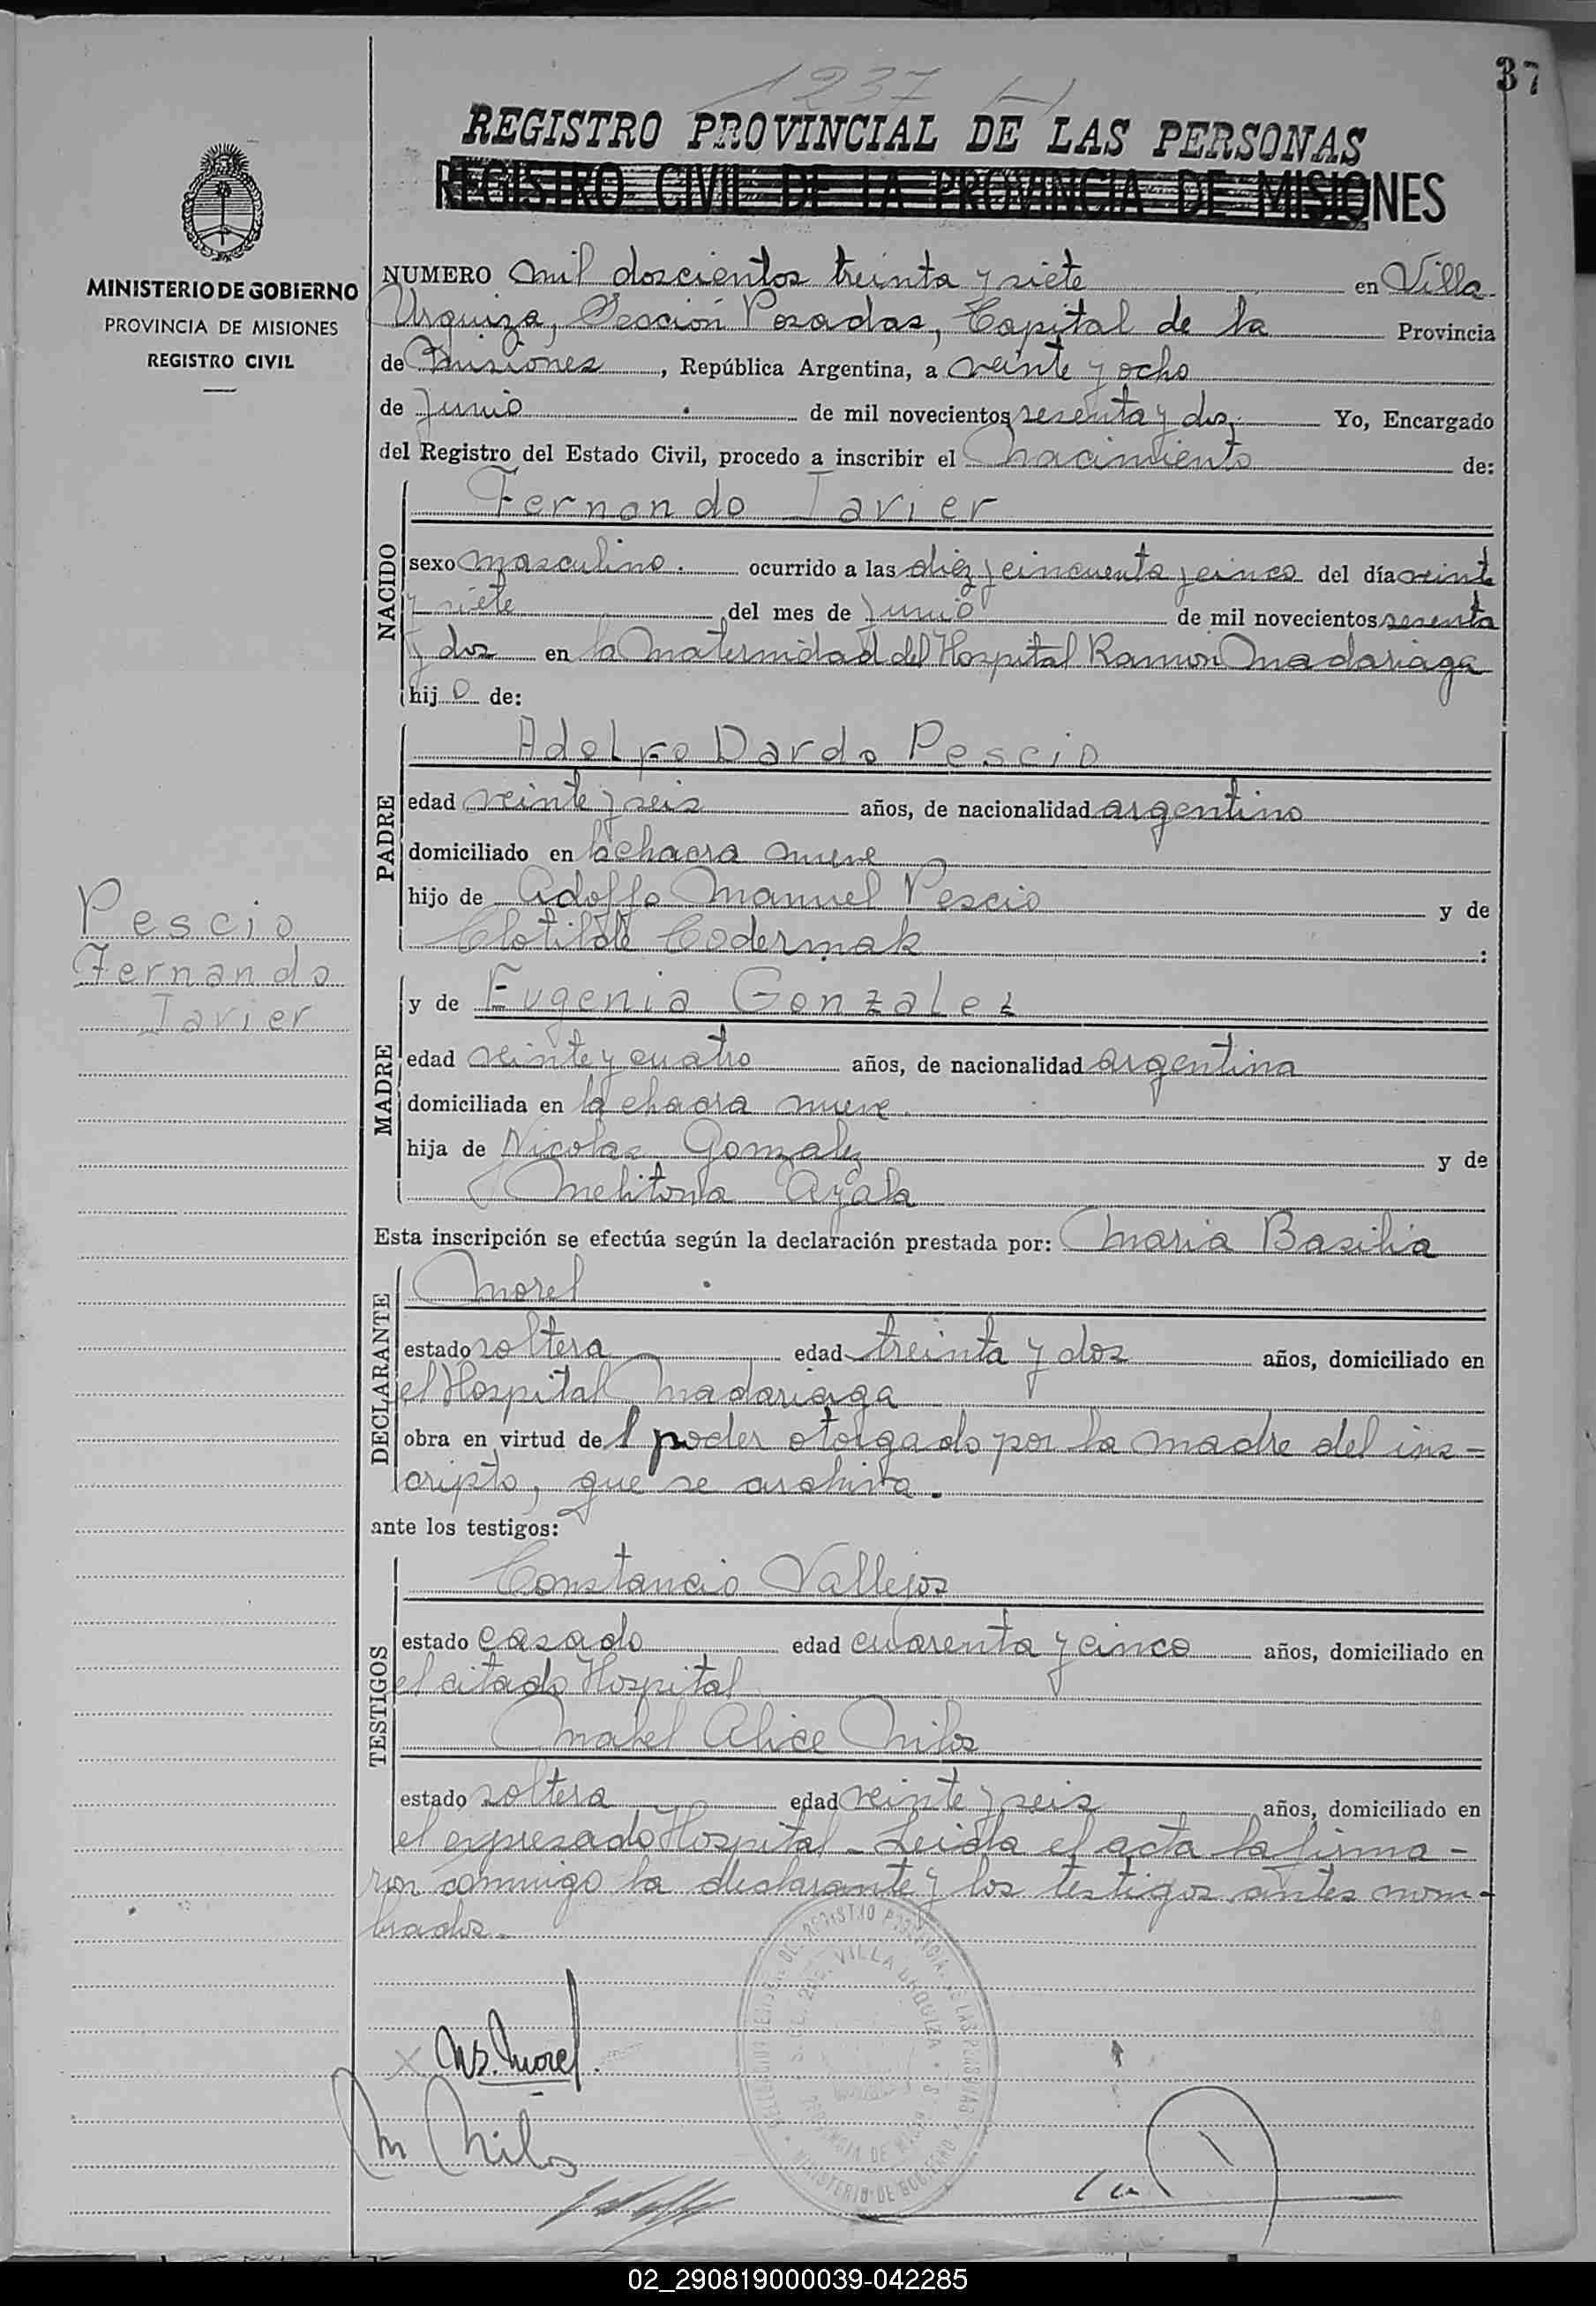 37
1237
REGISTRO PROVINCIAL DE LAS PERSONAS
REGISTRO CIVIL DE LA PROVINCIA DE MISIONES
MINISTERIO DE GOBIERNO
PROVINCIA DE MISIONES
REGISTRO CIVIL
NUMERO mil doscientos treinta y siete en Villa
Urquiza, Sección Posadas, Capital de la Provincia
de Misiones, República Argentina, a veinte y ocho
de Junio de mil novecientos sesenta y dos. Yo, Encargado
del Registro del Estado Civil, procedo a inscribir el nacimiento de:
Fernando Javier
NACIDO
sexo masculino. ocurrido a las diez y cincuenta y cinco del día veinte
y siete del mes de Junio de mil novecientos sesenta
y dos en la Maternidad del Hospital Ramon Madariaga
hijo de:
Adolfo Dardo Pescio
PADRE
edad veinte y seis años, de nacionalidad argentino
domiciliado en la chacra nueve
hijo de Adolfo Manuel Pescio y de
Clotilde Codermak :
Pescio
Fernando
Javier
y de Eugenia Gonzalez
MADRE
edad veinte y cuatro años, de nacionalidad argentina
domiciliada en la chacra nueve.
hija de Nicolas Gonzalez y de
Melitona Ayala
Esta inscripción se efectúa según la declaración prestada por: Maria Basilia
Morel
DECLARANTE
estado soltera edad treinta y dos años, domiciliado en
el Hospital Madariaga
obra en virtud del poder otorgado por la madre del ins=
cripto, que se archiva.
ante los testigos:
Constancio Vallejos
TESTIGOS
estado casado edad cuarenta y cinco años, domiciliado en
el citado Hospital
Mabel Alice Milos
estado soltera edad veinte y seis años, domiciliado en
el expresado Hospital - Leida el acta la firma-
ron conmigo la declarante y los testigos antes nom-
brados.-
VILLA URQUIZA
MINISTERIO DE GOBIERNO
x MB. Morel.
M Milos
02_290819000039-042285